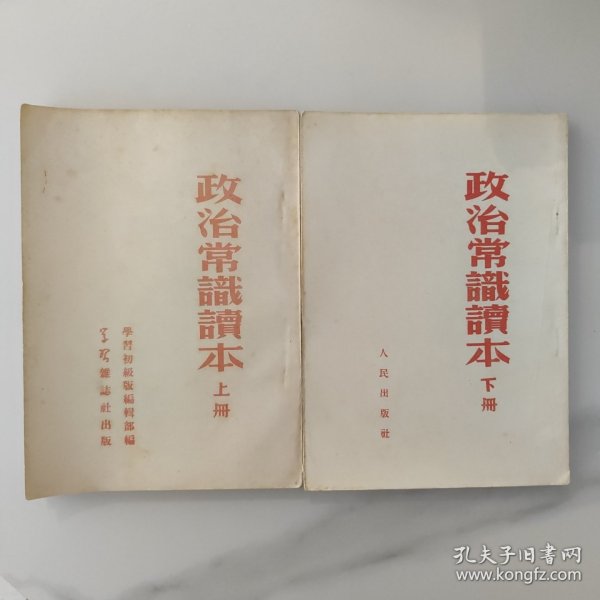 政治常識讀本
上冊
學習初級版編輯部編
学习雜誌社出版
政治常識讀本
下冊
人民出版社
孔夫子旧书网
www.kongfz.com